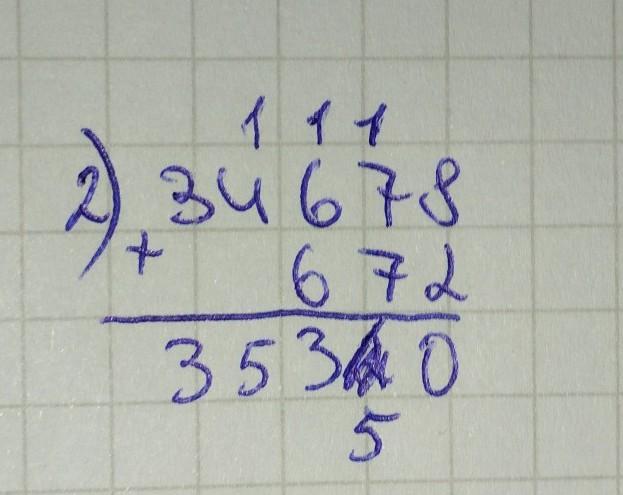 1 1 1
2) 34678
+ 672
353 0
5